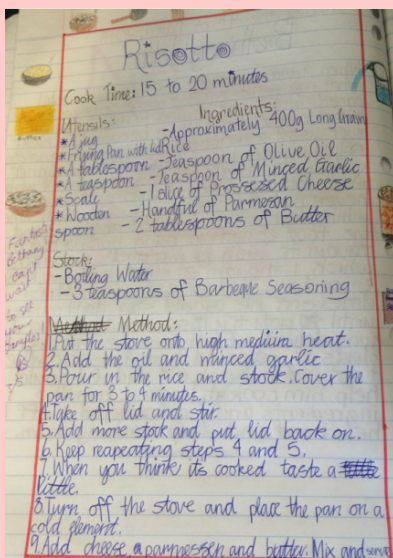 Risotto
Cook Time: 15 to 20 minutes
Utensils:
*A jug
*Frying Pan with lid
*A tablespoon
*A teaspoon
*Scale
*Wooden
spoon
Ingredients:
-Approximately 400g Long Grain
Rice
-Teaspoon of Olive Oil
-Teaspoon of Minced Garlic
-1 slice of Prossesed Cheese
-Handful of Parmesan
-2 tablespoons of Butter
Butter
Stock:
-Boiling Water
-3 teaspoons of Barbeque Seasoning
Method:
1.Put the stove onto high mediuim heat.
2.Add the oil and minced garlic
3.Pour in the rice and stock. Cover the
pan for 3 to 4 minutes.
4.Take off lid and stir.
5.Add more stock and put lid back on.
6.Keep reapeating steps 4 and 5.
7.When you think its cooked taste a
little.
8.Turn off the stove and place the pan on a
cold element.
9.Add cheese, parmessen and butter. Mix and serve
wait
to see